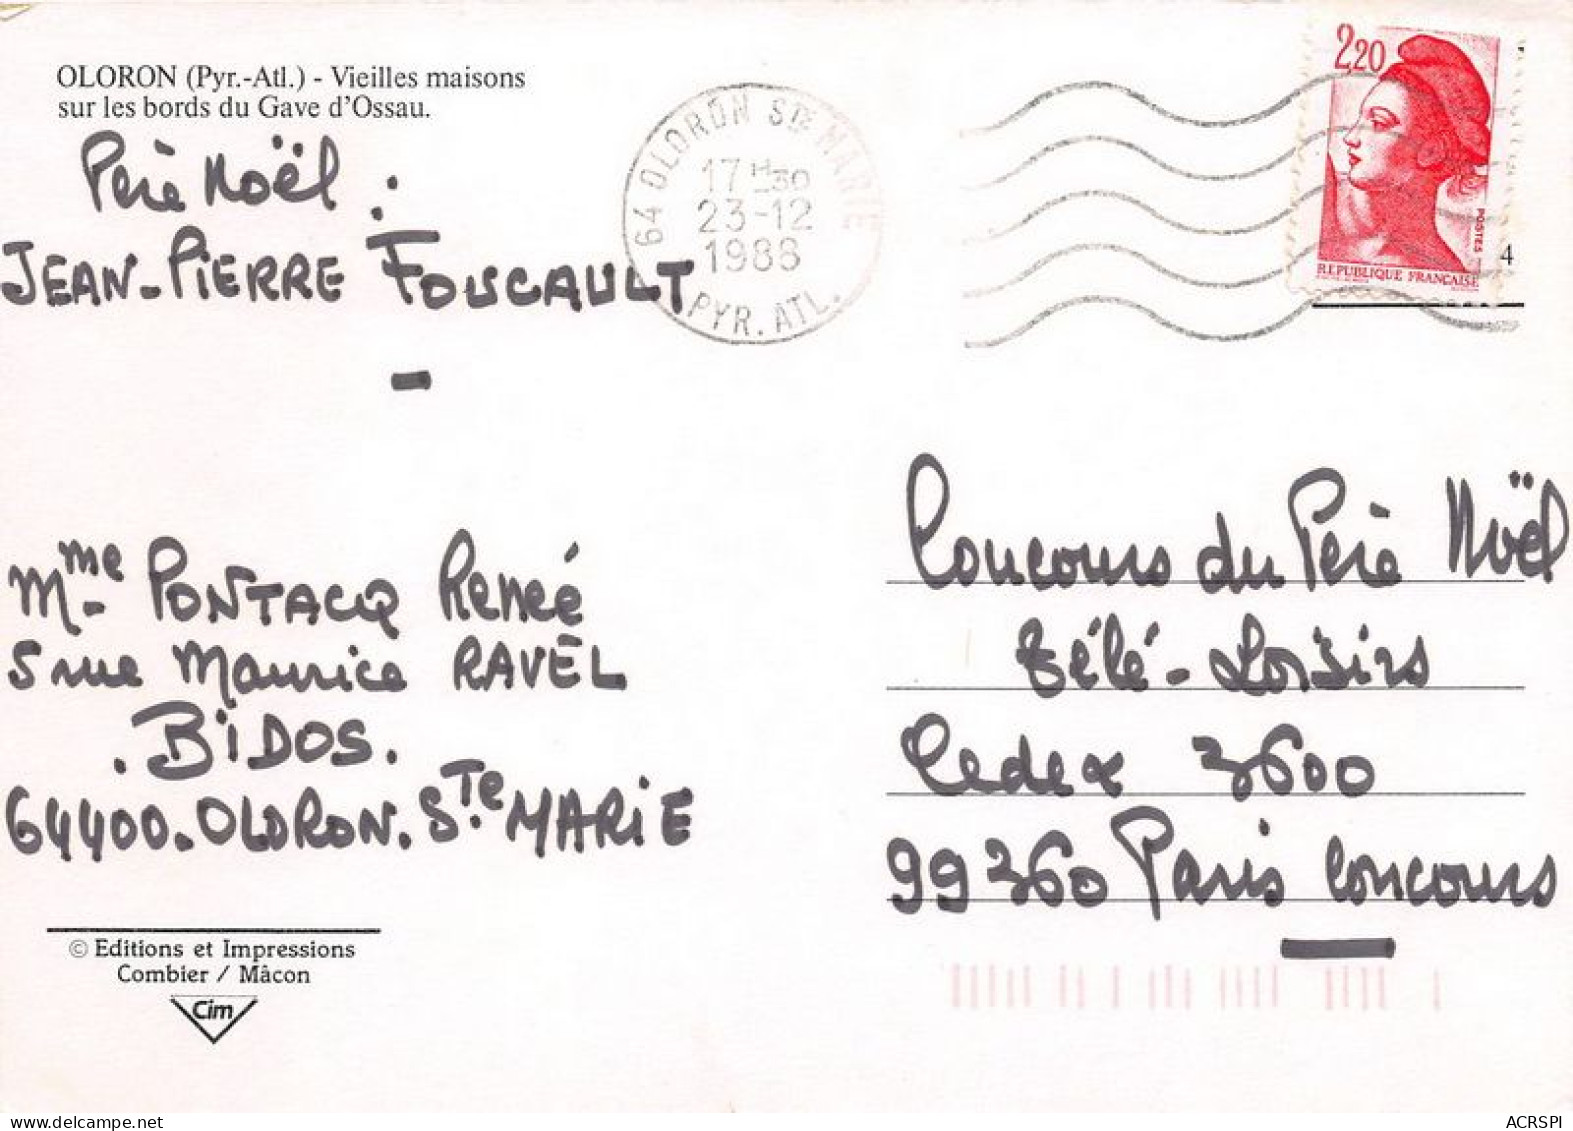 OLORON (Pyr.-Atl.) - Vieilles maisons
sur les bords du Gave d'Ossau.
Père Noël :
JEAN-PIERRE FOUCAULT
-
64 OLORON STE MARIE
17H30
23-12
1988
PYR. ATL.
2,20
POSTES
REPUBLIQUE FRANÇAISE
4
Mme PONTACQ Renée
5 rue Maurice RAVEL
.BIDOS.
64400.OLORON.Ste MARIE
Concours du Père Noël
Télé-Loisirs
Cedex 3600
99360 Paris Concours
© Editions et Impressions
Combier / Mâcon
Cim
delcampe.net
ACRSPI